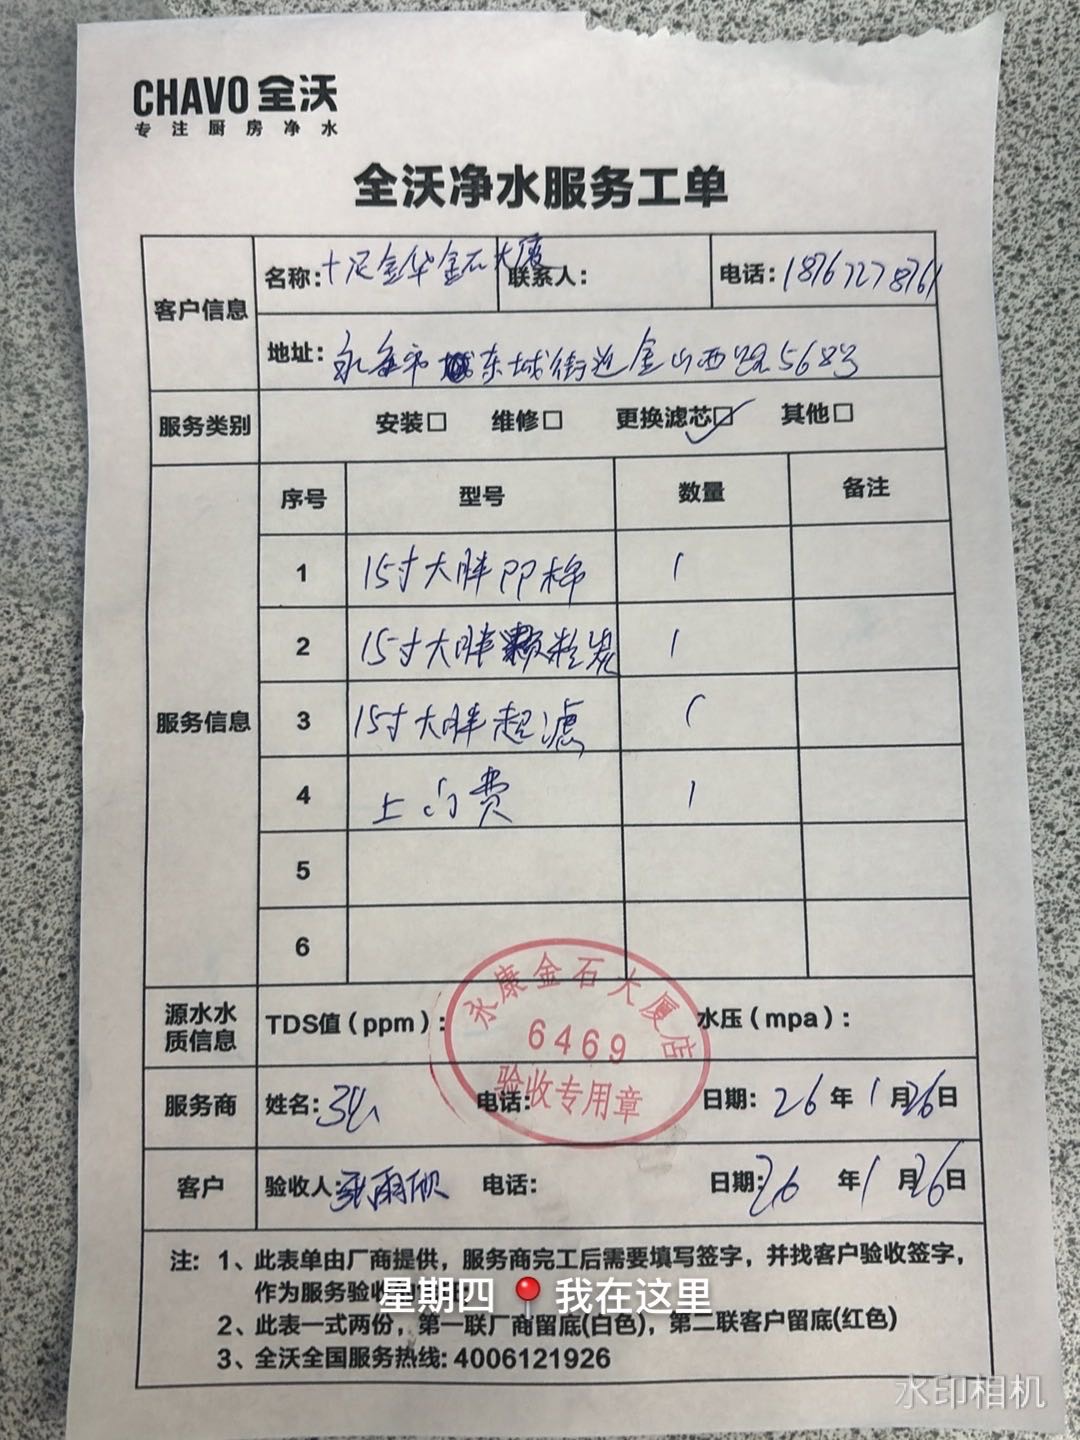 CHAVO 全沃
专注厨房净水
全沃净水服务工单
客户信息 名称: 十足金华金石大厦 联系人: 电话: 18767278761
地址: 永康市东城街道金山西路568号
服务类别 安装□ 维修□ 更换滤芯☑ 其他□
服务信息
序号 型号 数量 备注
1 15寸大胖PP棉 1
2 15寸大胖颗粒炭 1
3 15寸大胖超滤 1
4 上门费 1
5
6
源水水质信息 TDS值(ppm): 水压(mpa):
永康金石大厦店
6469
验收专用章
服务商 姓名: 电话: 日期: 26年1月26日
客户 验收人: 雨欣 电话: 日期: 26年1月26日
注: 1、此表单由厂商提供，服务商完工后需要填写签字，并找客户验收签字，
作为服务验收
2、此表一式两份，第一联厂商留底(白色)，第二联客户留底(红色)
3、全沃全国服务热线: 4006121926
星期四 📍我在这里
水印相机